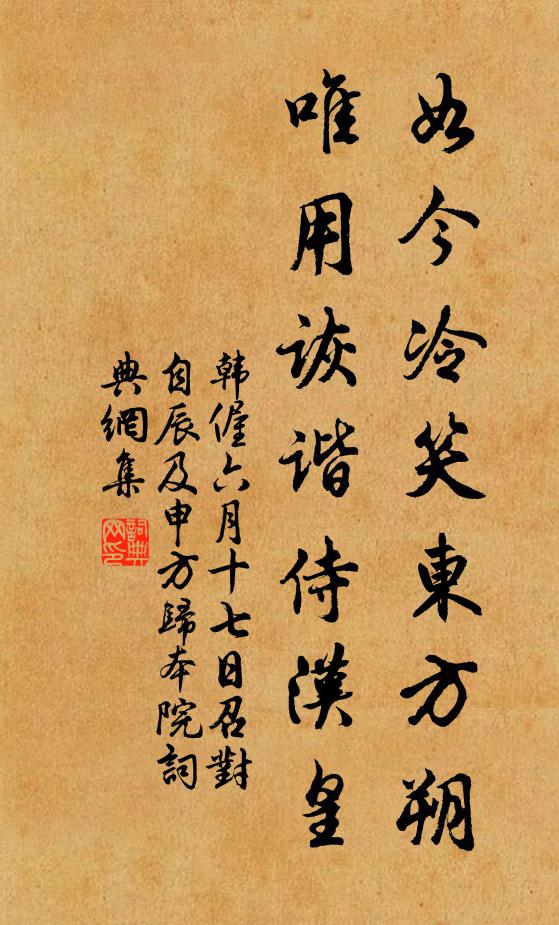 如今冷笑東方朔
唯用詼谐侍漢皇
韩偓六月十七日召對
自辰及申方歸本院詞
典網集
詞典网印